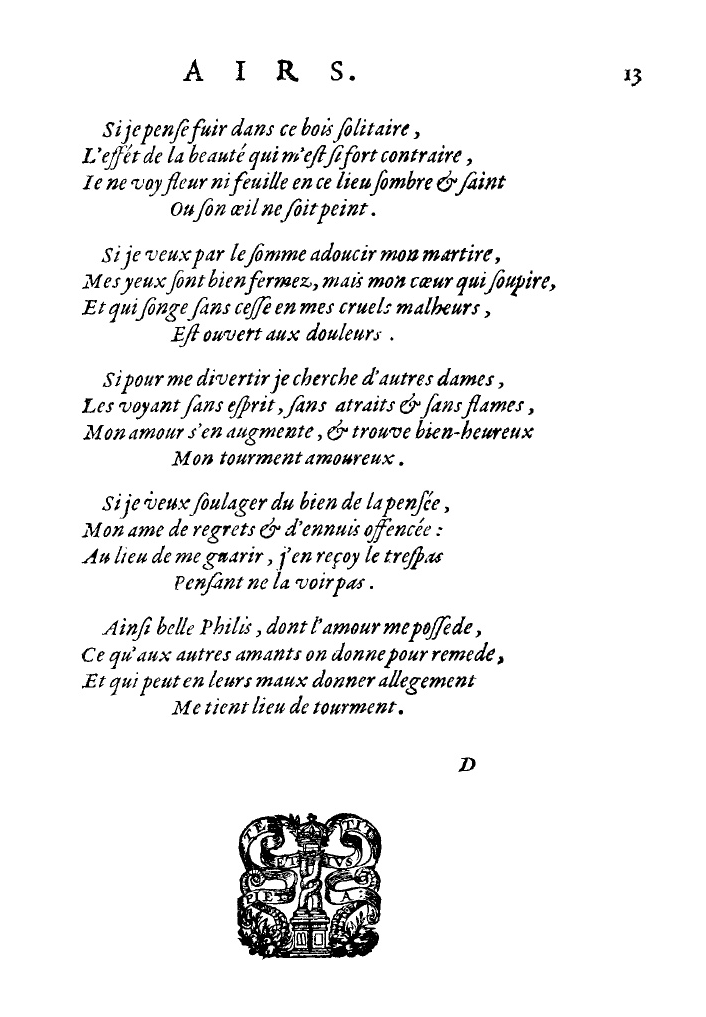 A I R S. 13
Si je penſe fuir dans ce bois ſolitaire ,
L'effét de la beauté qui m'eſt ſi fort contraire ,
Ie ne voy fleur ni feuille en ce lieu ſombre & ſaint
Ou ſon œil ne ſoit peint .
Si je veux par le ſomme adoucir mon martire ,
Mes yeux ſont bien fermez, mais mon cœur qui ſoupire,
Et qui ſonge ſans ceſſe en mes cruels malheurs ,
Eſt ouvert aux douleurs .
Si pour me divertir je cherche d'autres dames ,
Les voyant ſans eſprit , ſans atraits & ſans flames ,
Mon amour s'en augmente , & trouve bien-heureux
Mon tourment amoureux .
Si je veux ſoulager du bien de la penſée ,
Mon ame de regrets & d'ennuis offencée :
Au lieu de me guarir , j'en reçoy le treſpas
Penſant ne la voir pas .
Ainſi belle Philis , dont l'amour me poſſede ,
Ce qu'aux autres amants on donne pour remede ,
Et qui peut en leurs maux donner allegement
Me tient lieu de tourment .
D
TE TIT
ET IVS
PIET A: